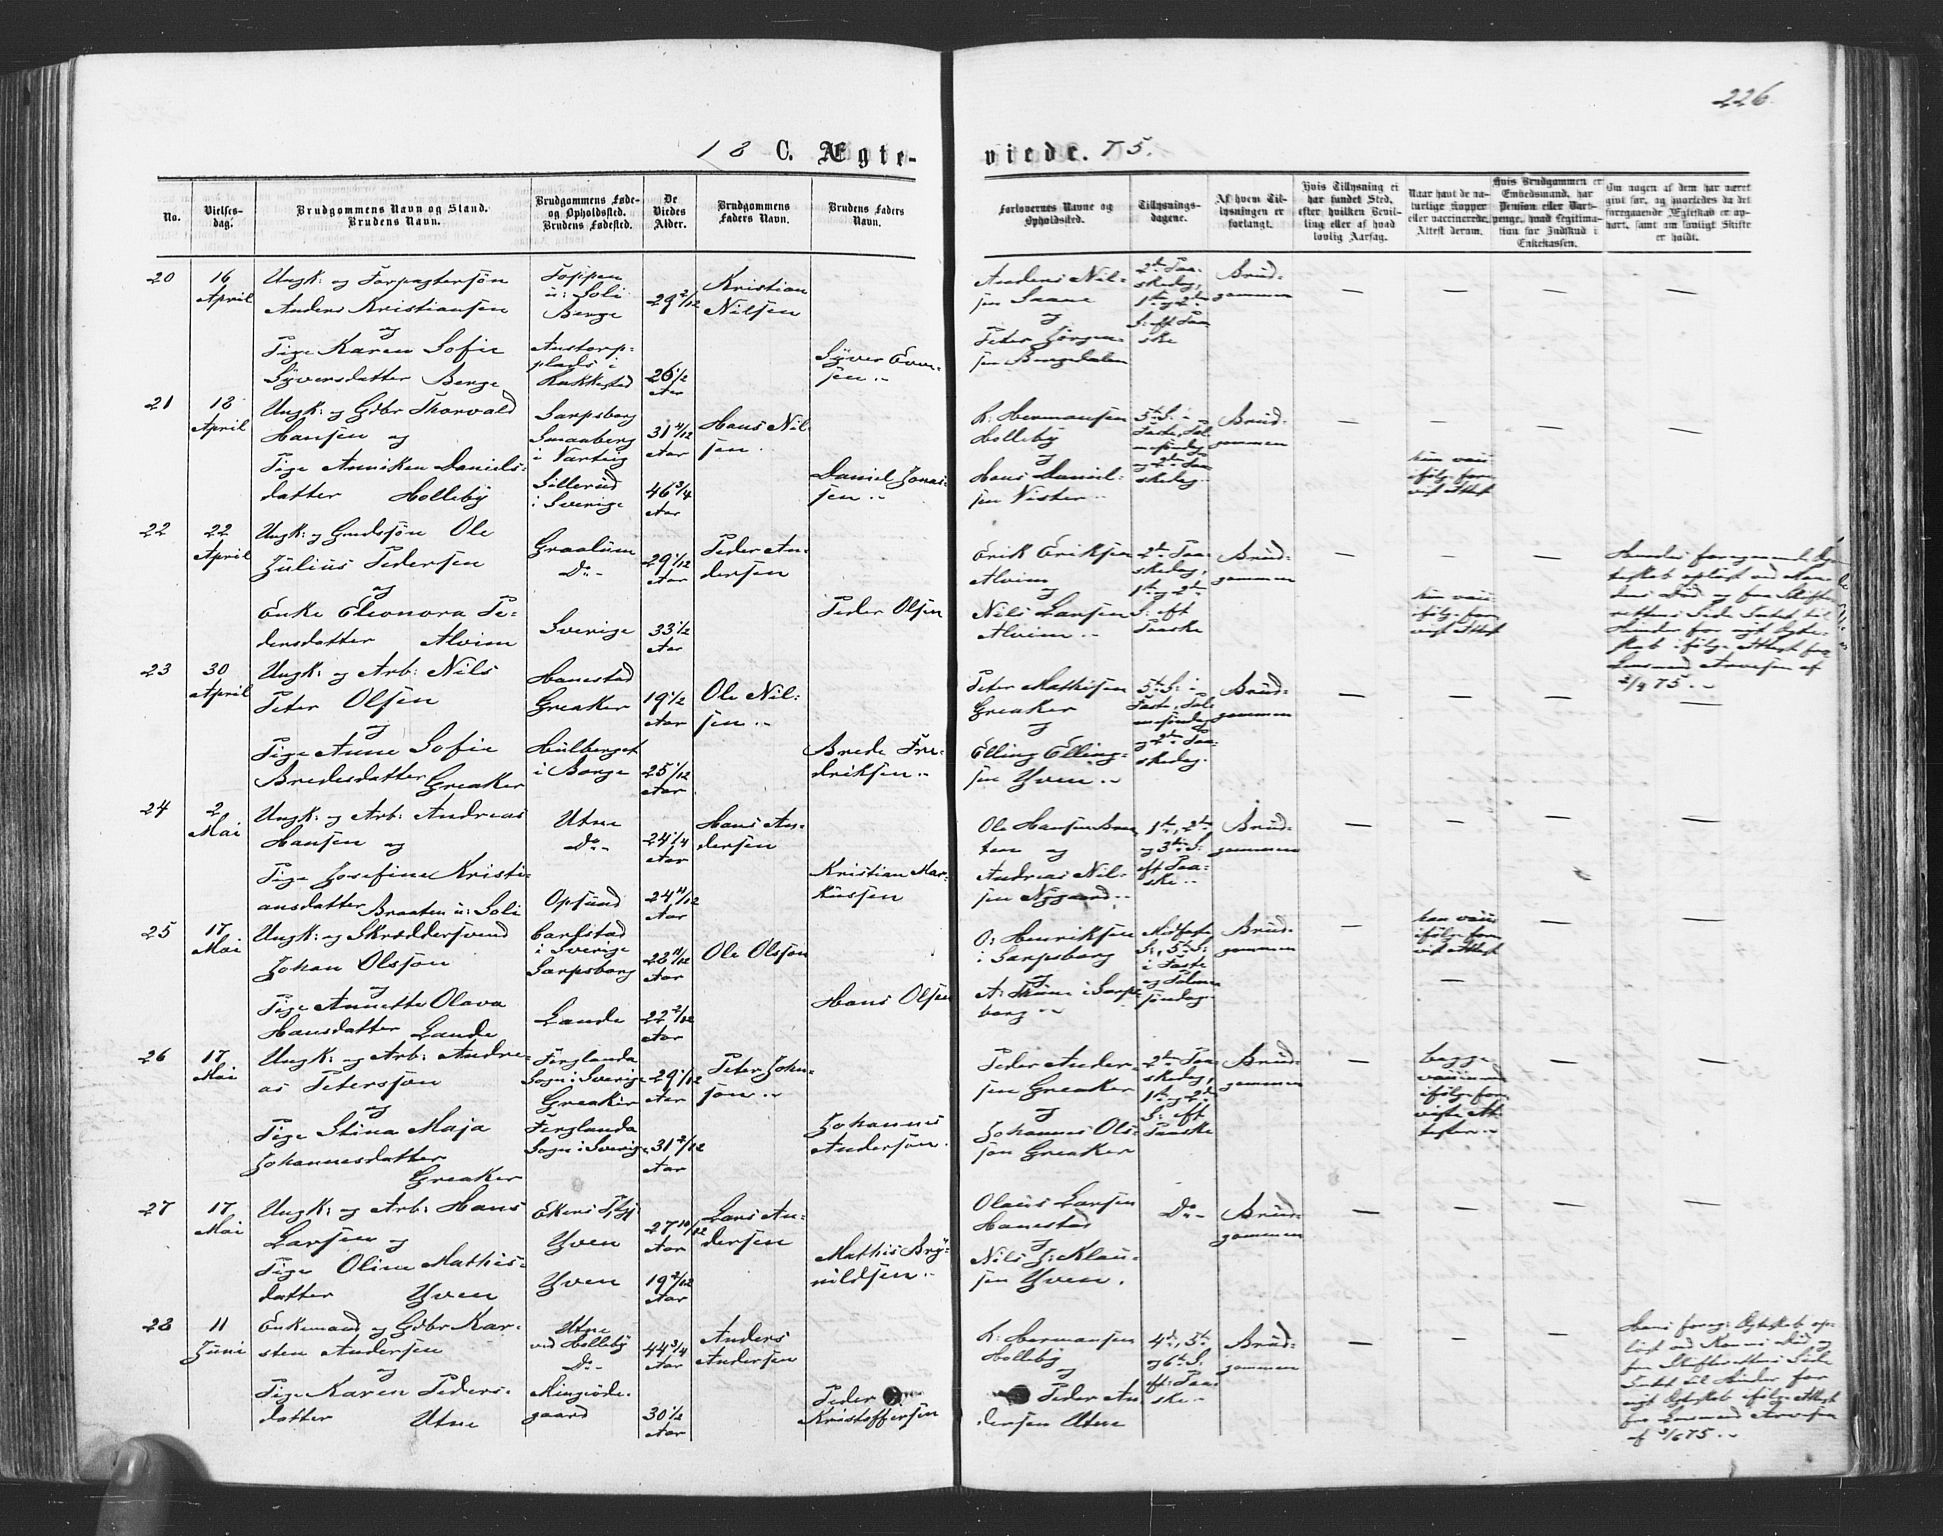 226.
18 C. Ægte-
viede. 75.
No.
Vielses-
dag.
Brudgommens Navn og Stand.
Brudens Navn.
Brudgommens Føde-
og Opholdssted.
Brudens Fødested.
De
Viedes
Alder.
Brudgommens
Faders Navn.
Brudens Faders
Navn.
Forlovernes Navne og
Opholdssted.
Tillysnings-
dagene.
Af hvem Til-
lysningen er
forlangt.
Hvis Tillysning ei
har fundet Sted,
efter hvilken Bevil-
ling eller af hvad
lovlig Aarsag.
Naar havt de na-
turlige Kopper
eller vaccinerede,
Attest derom.
Hvis Brudgommen er
Embedsmand, har
Pension eller Vart-
penge, hvad Legitima-
tion for Indskud i
Enkekassen.
Om nogen af dem har været
gift før, og hvorledes da det
foregaaende Ægteskab er op-
hørt, samt om lovligt Skifte
er holdt.
20
16
April
Ungk: og Forpagtersøn
Anders Kristiansen
og
Pige Karen Sofie
Syversdatter Berge
Toppen
u: Soli
Berge
Austorp-
plads i
Rakkestad
29 2/12
26 1/2
Aar
Kristian
Nilsen
Syver Even-
sen
Anders Nil-
sen Saane
og
Peter Jørgen-
sen Bergedalen
2den Paa-
skedag,
1ste og 2den
S: eft Paa-
ske
Brud-
gommen
21
18
April
Ungk: og Gdbr Thorvald
Hansen og
Pige Anniken Daniels-
datter Holleby
Sarpsborg
Smaaberg
i Varteig
Sillerud
i Sverige
31 4/12
Aar
46 3/4
Aar
Hans Nil-
sen.
Daniel Jonas-
sen
R: Hermansen
Holleby
og
Hans Daniel-
sen Nister
5te S: i
Faste, Pal-
mesøndag
og 2den Paa-
skedag
Brud-
gommen
hun vacc
ifølge fore-
vist Attest
22
22
April
Ungk: og Grdssøn Ole
Julius Pedersen
og
Enke Eleonora Pe-
dersdatter Alvim
Graalum
Do
Sverige
29 1/12
Aar
33 1/2
Aar
Peder An-
dersen
Peder Olsen
Erik Eriksen
Alvim
og
Nils Larsen
Alvim
2den Paa-
skedag,
1ste og 2den
S: eft
Paaske
Brud-
gommen
hun vacc
ifølge fore-
vist Attest
Hendes foregaaende Æg-
teskab opløst ved Man-
dens Død og fra Skifte-
rettens Side Intet til
Hinder for nyt Ægte-
skab ifølge Attest fra
Lensmand Arvesen af
2/4 75.
23
30
April
Ungk: og Arb: Nils
Peter Olsen
og
Pige Anne Sofie
Bredesdatter Greaker
Hanestad
Greaker
Hulberget
i Borge
19 1/2
Aar
25 1/12
Aar
Ole Nil-
sen
Brede Fre-
driksen
Peter Mathisen
Greaker
og
Elling Elling-
sen Yven
5te S: i
Faste, Pal-
mesøndag
og 2den Paa-
skedag
Brud-
gommen
24
2
Mai
Ungk: og Arb: Andreas
Hansen og
Pige Josefine Kristi-
ansdatter Braaten u: Soli
Utne
Do
Opsund
24 1/4
Aar
24 11/12
Aar
Hans An-
dersen
Kristian Mar-
kussen
Ole Hansen Braa-
ten og
Andreas Nil-
sen Nygaard
1ste, 2den
og 3die S:
eft Paa-
ske
Brud-
gommen
25
17
Mai
Ungk: og Skræddersvend
Johan Olsson
og
Pige Annette Olava
Hansdatter Lande
Carlstad
i Sverige
Sarpsborg
Lande
28 11/12
Aar
22 2/12
Aar
Ole Olsson
Hans Olsen
O: Henriksen
i Sarpsborg
og
A: Thune i Sarps-
borg
Midfaste
S:, 5te S:
i Faste
og Palme-
søndag
Brud-
gommen
han vacc
ifølge fore-
vist Attest
26
17
Mai
Ungk: og Arb: Andre-
as Petersson
og
Pige Stina Maja
Johannesdatter
Greaker
Ferglanda
Sogn i Sverige
Greaker
Ferglanda
Sogn i Sverige
29 1/12
Aar
31 2/12
Aar
Peter John-
son
Johannes
Anderson
Peder Ander-
sen Greaker
og
Johannes Ols-
son Greaker
2den Paa-
skedag,
1ste og 2den
S: eft
Paaske
Brud-
gommen
begge
vaccinered
ifølge fore-
viste At-
tester
27
17
Mai
Ungk: og Arb: Hans
Larsen og
Pige Oline Mathis-
datter Yven
Yven
Yven
27 10/12
Aar
19 2/12
Aar
Lars An-
dersen
Mathis Bry-
nildsen
Olaus Larsen
Hanestad
og
Nils J: Klau-
sen Yven.
Do
Brud-
gommen
28
11
Juni
Enkemand og Gdbr Kar-
sten Andersen
og
Pige Karen Peders-
datter Utne
Utne
ved Holleby
Do
Mingeøde-
gaard
44 3/4
Aar
30 1/2
Aar
Anders
Andersen
Peder
Kristoffersen
R: Hermansen
Holleby
og
Peder An-
dersen Utne
4de, 5te
og 6te S:
eft: Paa-
ske
Brud-
gommen
Hans foreg: Ægteskab op-
løst ved Konens Død og
fra Skifterettens Side
Intet til Hinder for
nyt Ægteskab ifølge Attest
fra Lensmand Arvesen
af 3/6 75.